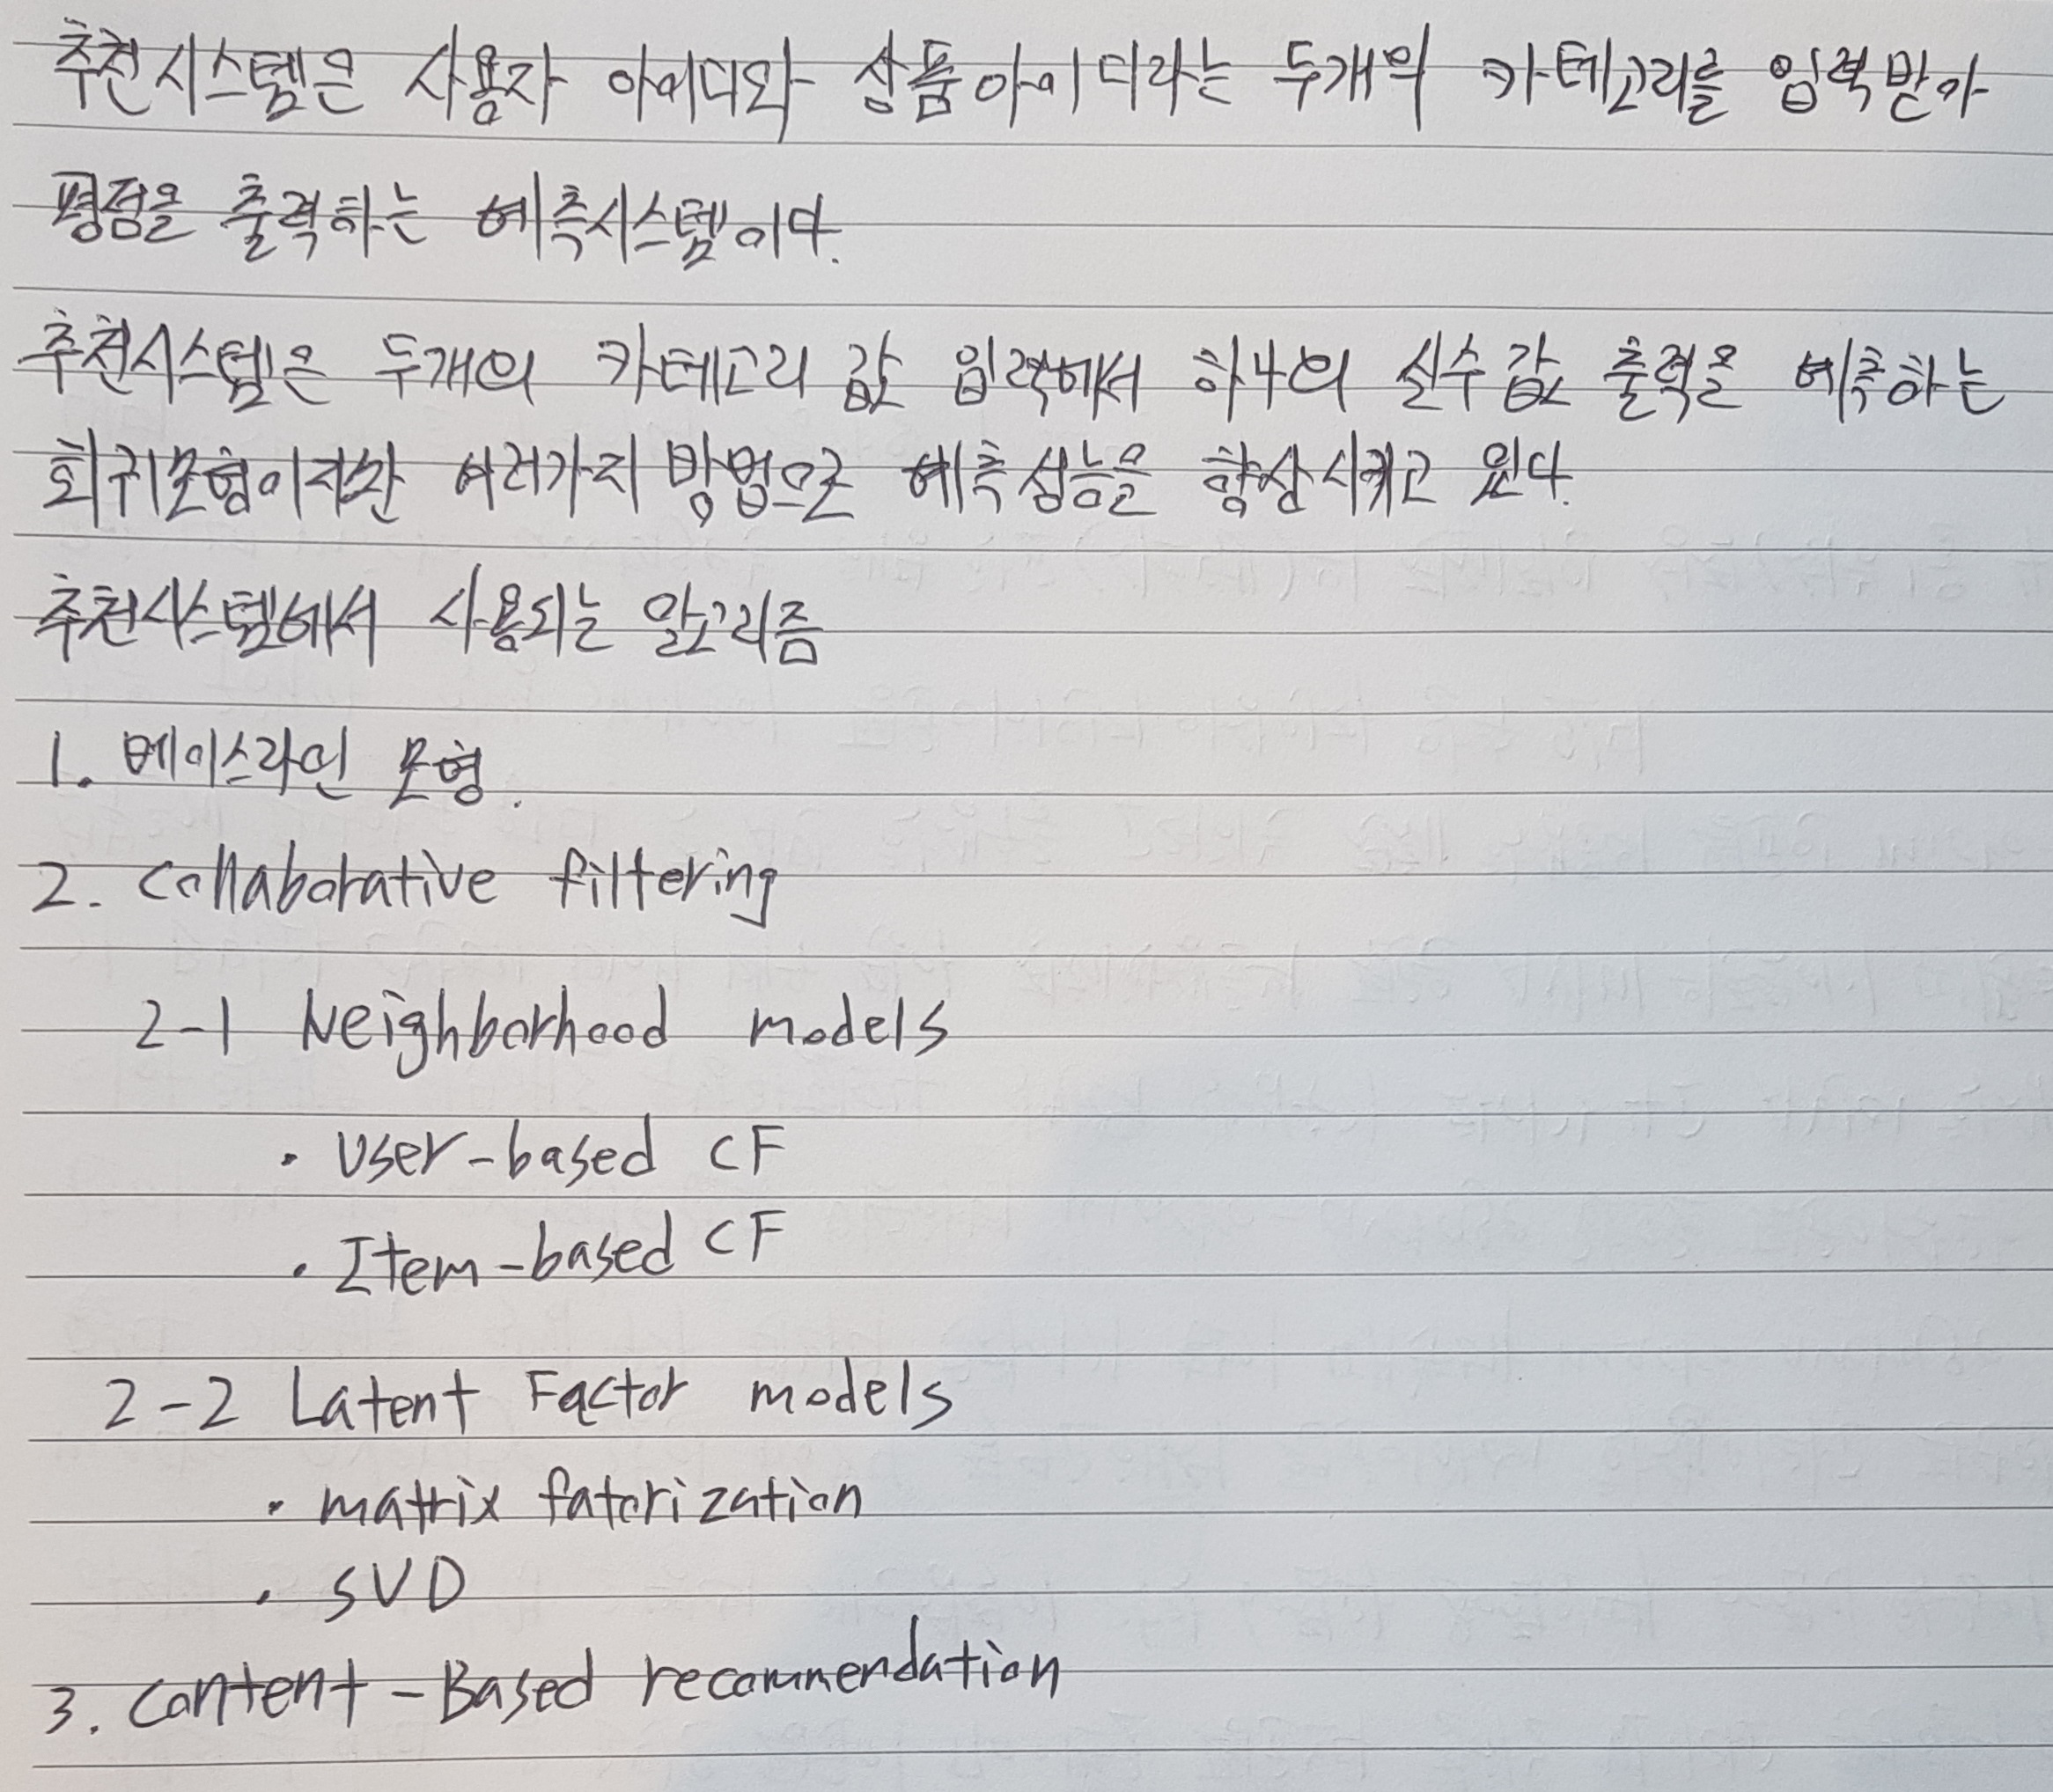 추천시스템은 사용자 아이디와 상품아이디라는 두개의 카테고리를 입력받아
평점을 출력하는 예측시스템이다.
추천시스템은 두개의 카테고리 값 입력에서 하나의 실수값 출력을 예측하는
회귀모형이지만 여러가지 방법으로 예측성능을 향상시키고 있다.
추천시스템에서 사용되는 알고리즘
1. 베이스라인 모형.
2. Collaborative filtering
2-1 Neighborhood models
• User-based CF
• Item-based CF
2-2 Latent Factor models
• matrix fatorization
• SVD
3. Content-Based recommendation